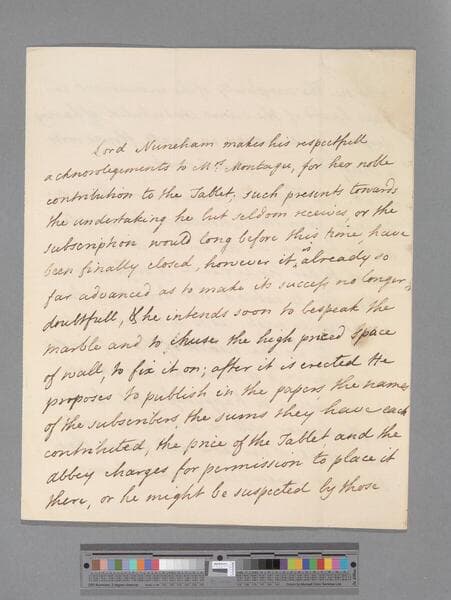 Lord Nuneham makes his respectfull
acknowlegements to Mrs Montagu, for her noble
contribution to the Tablet, such presents towards
the undertaking he but seldom receives, or the
subscription would long before this time, have
been finally closed, however it is already so
far advanced as to make its success no longer
doubtfull, & he intends soon to bespeak the
marble and to chuse the high priced space
of wall, to fix it on; after it is erected He
proposes to publish in the papers, the names
of the subscribers, the sums they have each
contributed, the price of the Tablet, and the
abbey charges for permission to place it
there, or he might be suspected by those